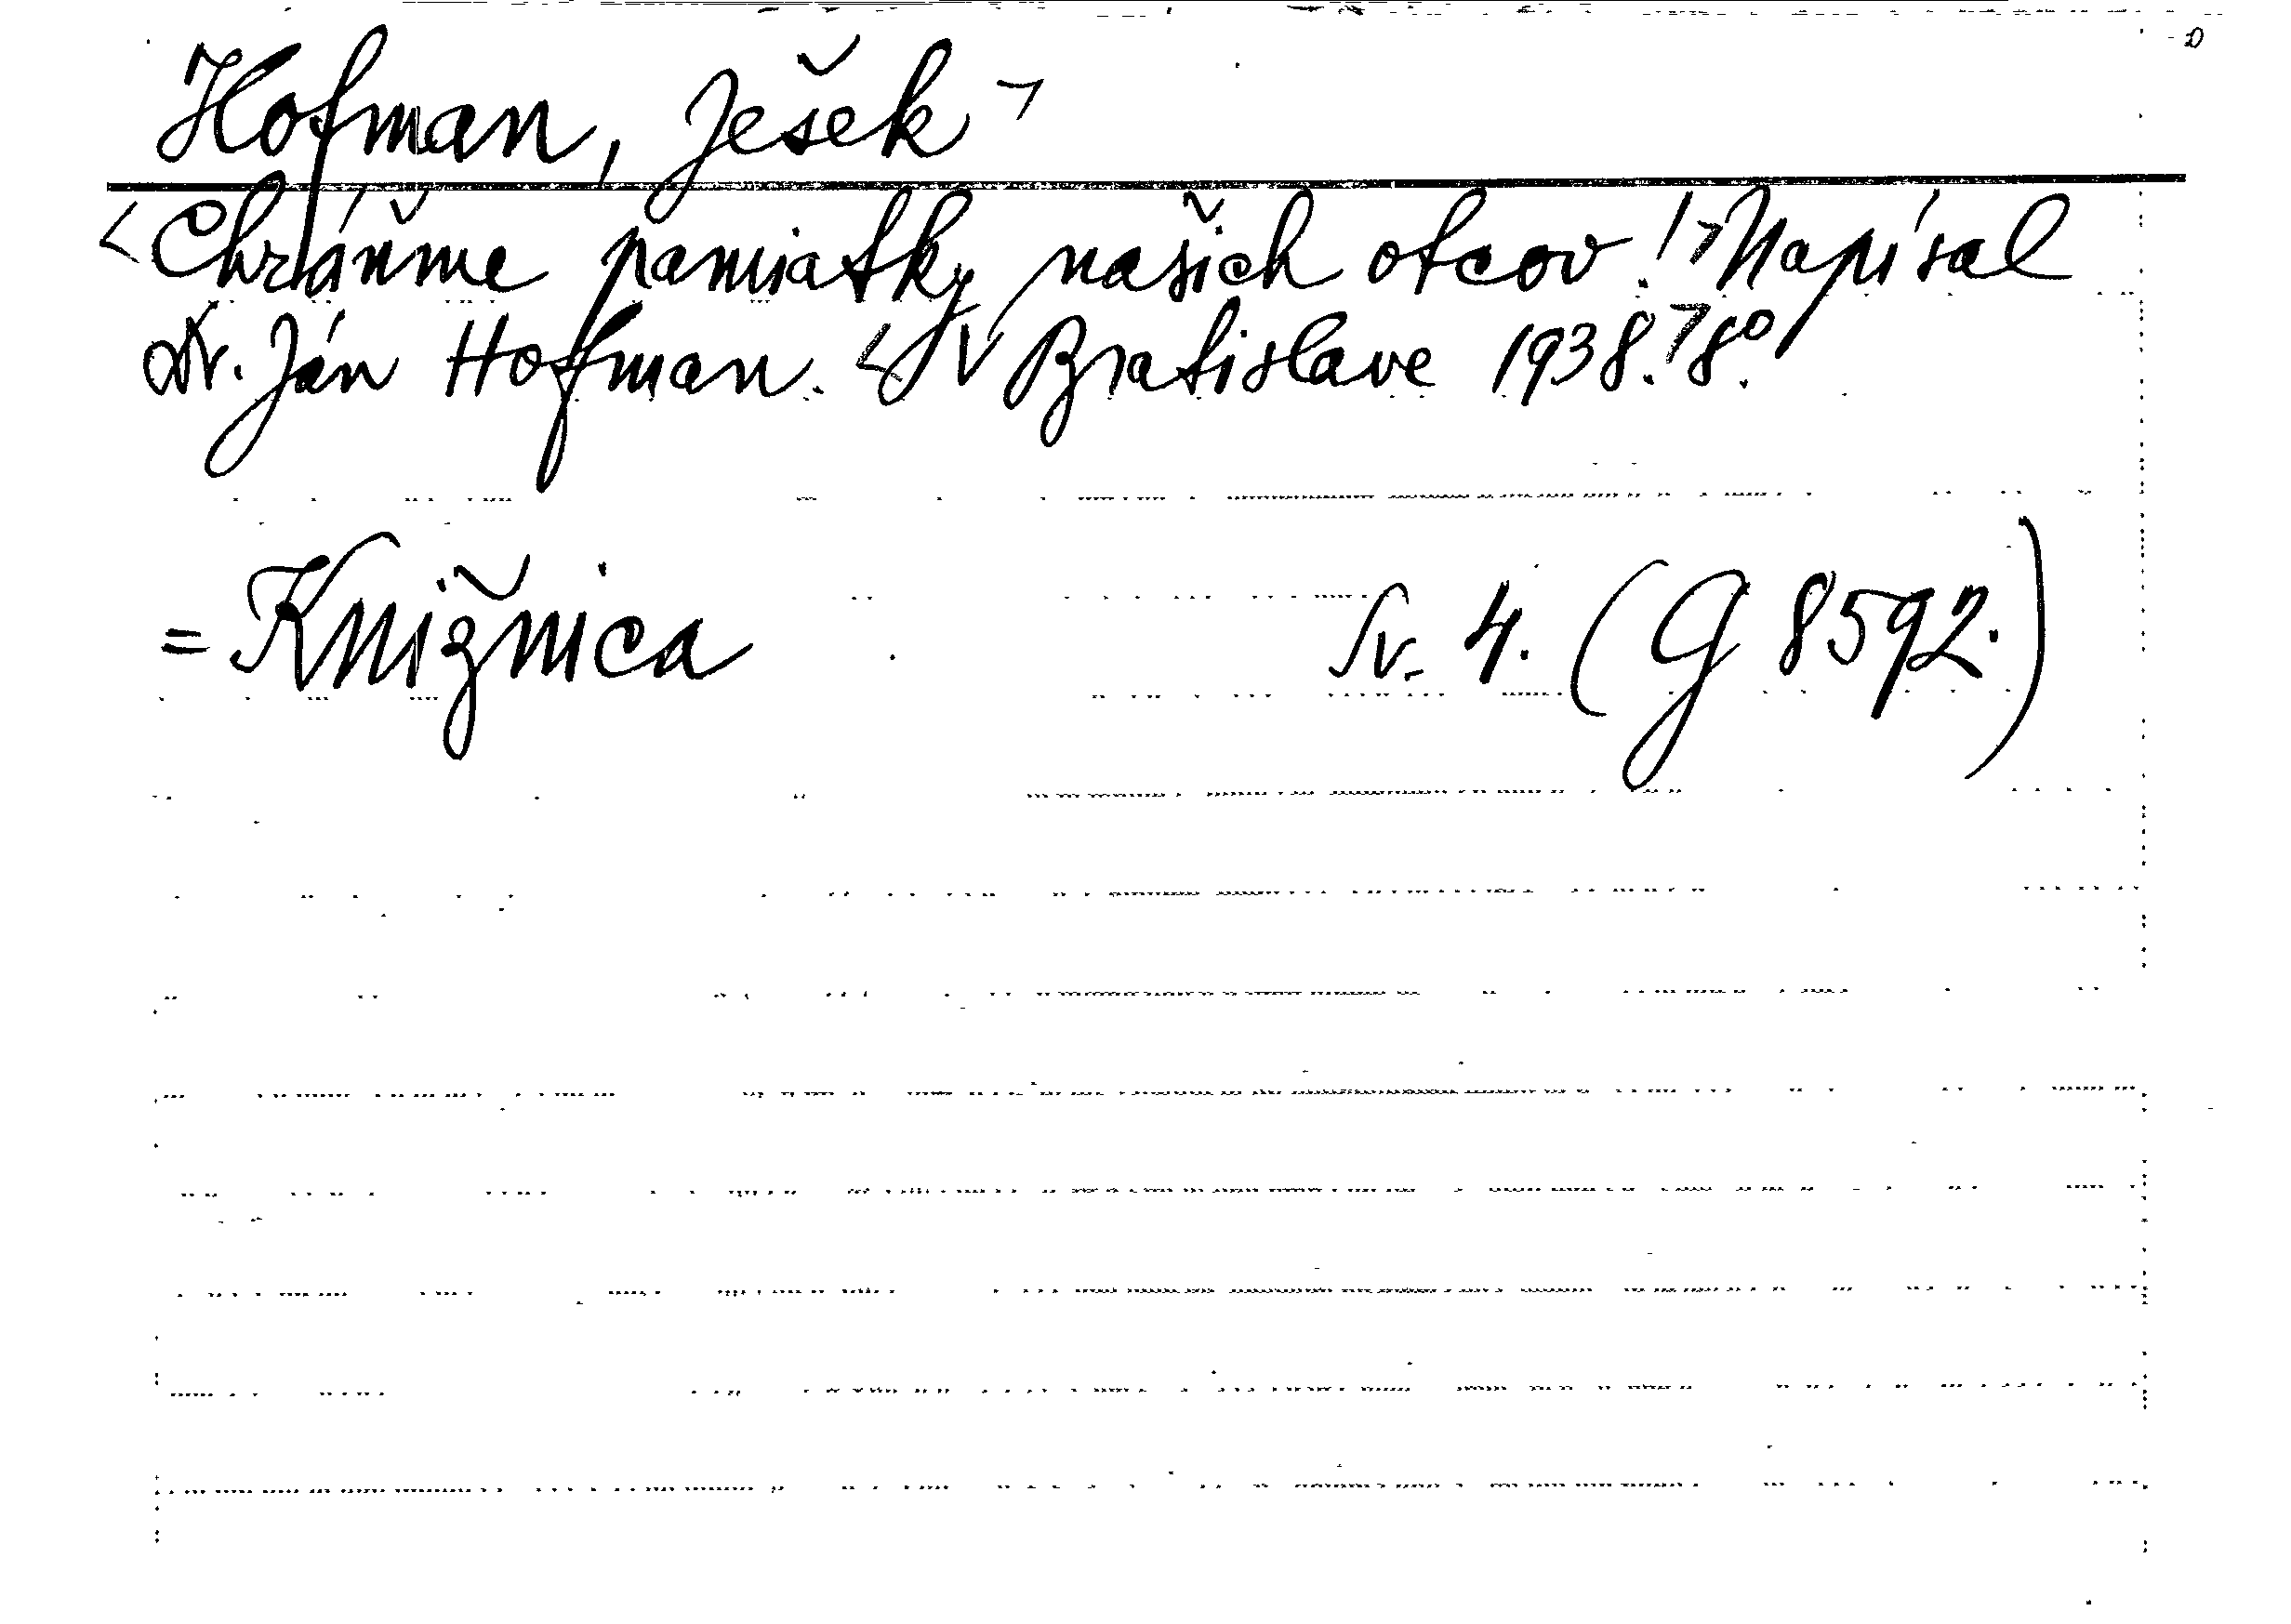 Hofman, Ješek >
<Chráňme pamiatky našich otcov!> Napísal
Dr. Ján Hofman. <V Bratislave 1938.> 8°.
= Knižnica Sv. 4. (G 8592.)